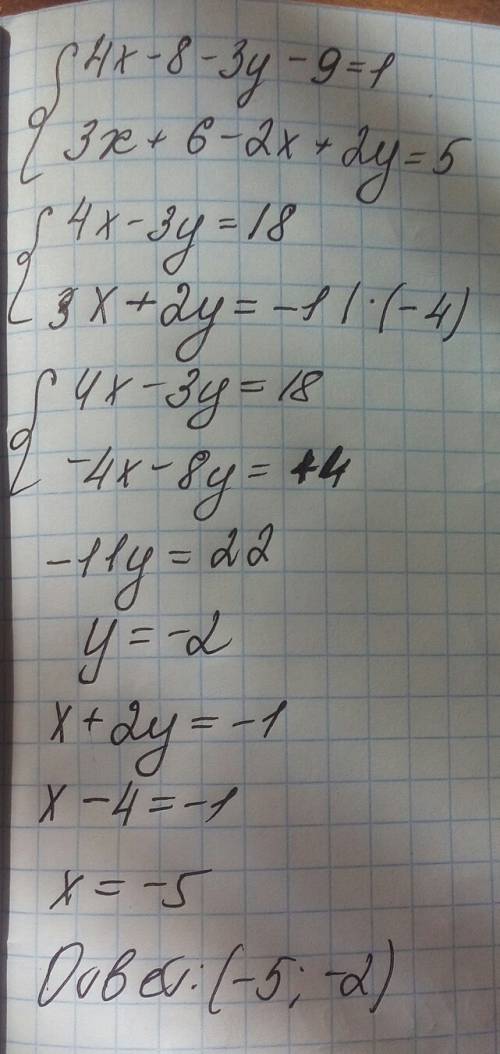 4x - 8 - 3y - 9 = 1
3x + 6 - 2x + 2y = 5
4x - 3y = 18
x + 2y = -1 | · (-4)
4x - 3y = 18
-4x - 8y = +4
-11y = 22
y = -2
x + 2y = -1
x - 4 = -1
x = -5
Ответ: (-5; -2)